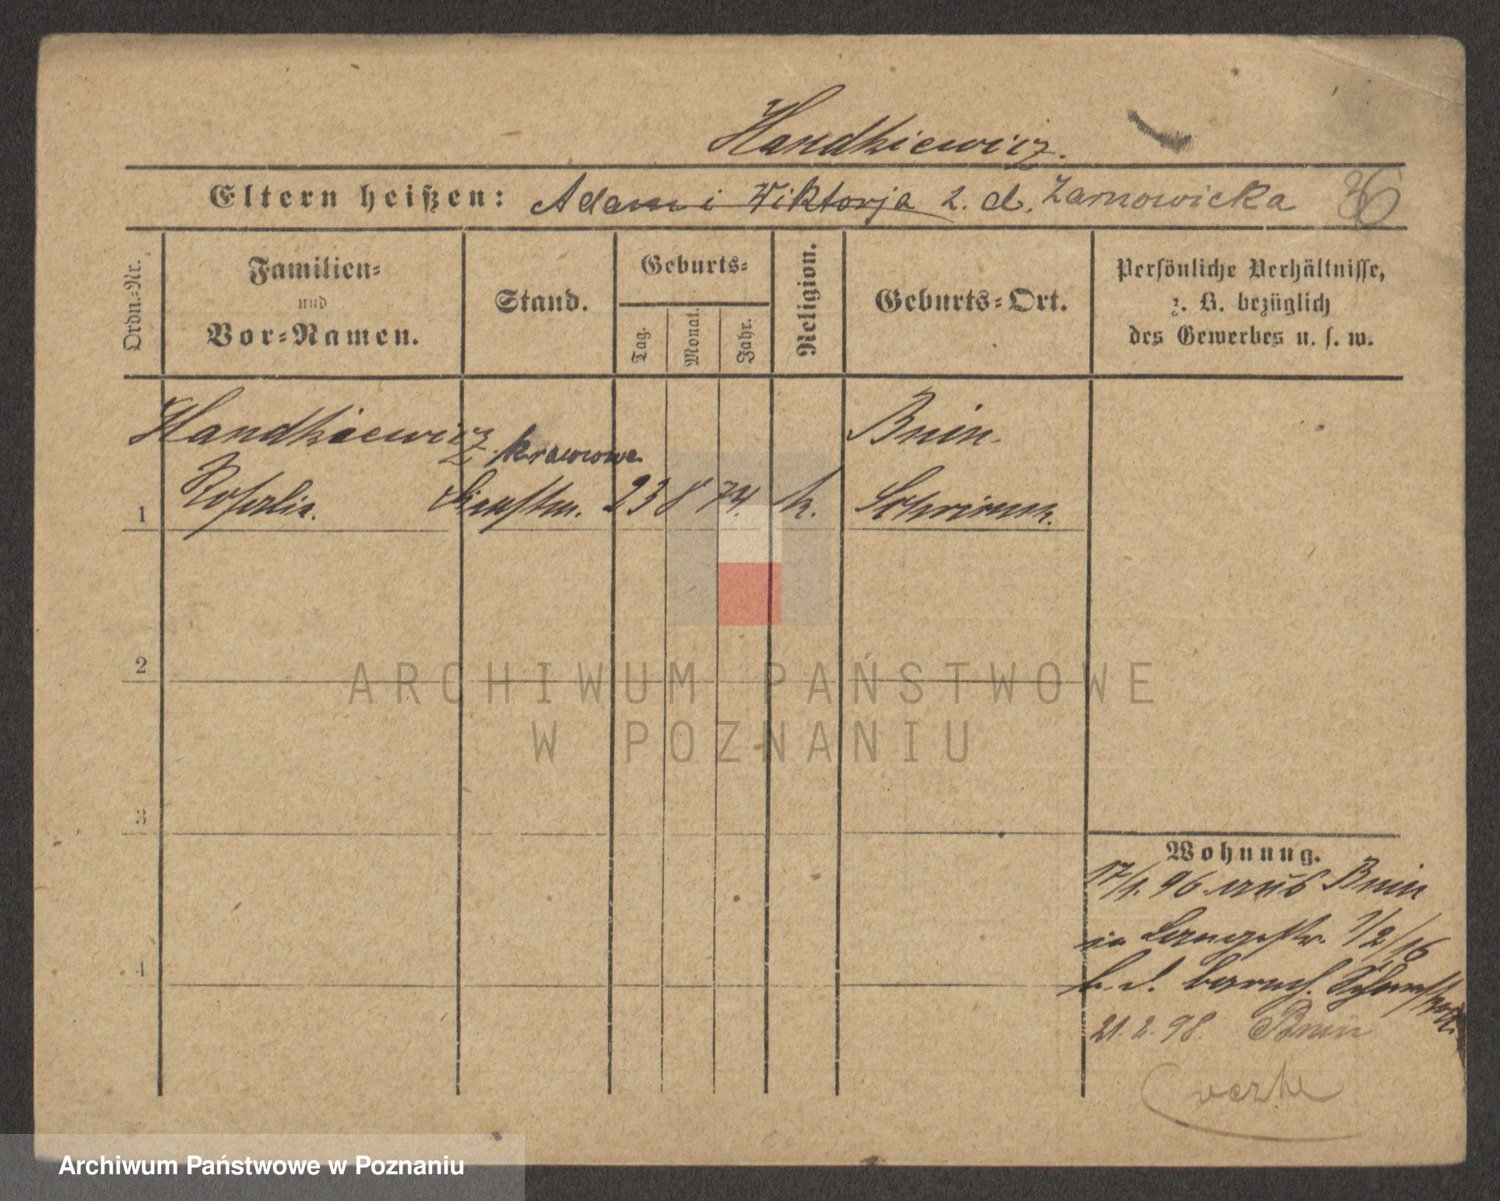 Handkiewicz.
Eltern heißen: Adam i Wiktorja z. d. Żarnowicka 36
Ordn.-Nr.
Familien-
und
Vor-Namen.
Stand.
Geburts-
Tag.
Monat.
Jahr.
Religion.
Geburts-Ort.
Persönliche Verhältnisse,
z. B. bezüglich
des Gewerbes u. s. w.
Handkiewicz krawcowa Bnin.
1 Rosalia. 23 8 74. k. Schrimm.
2
3
4
Wohnung.
17/1. 96. aus Bnin
in Langestr. 1/2/16
b. d.
21. 2. 98. Bnin
ARCHIWUM PAŃSTWOWE
W POZNANIU
Archiwum Państwowe w Poznaniu